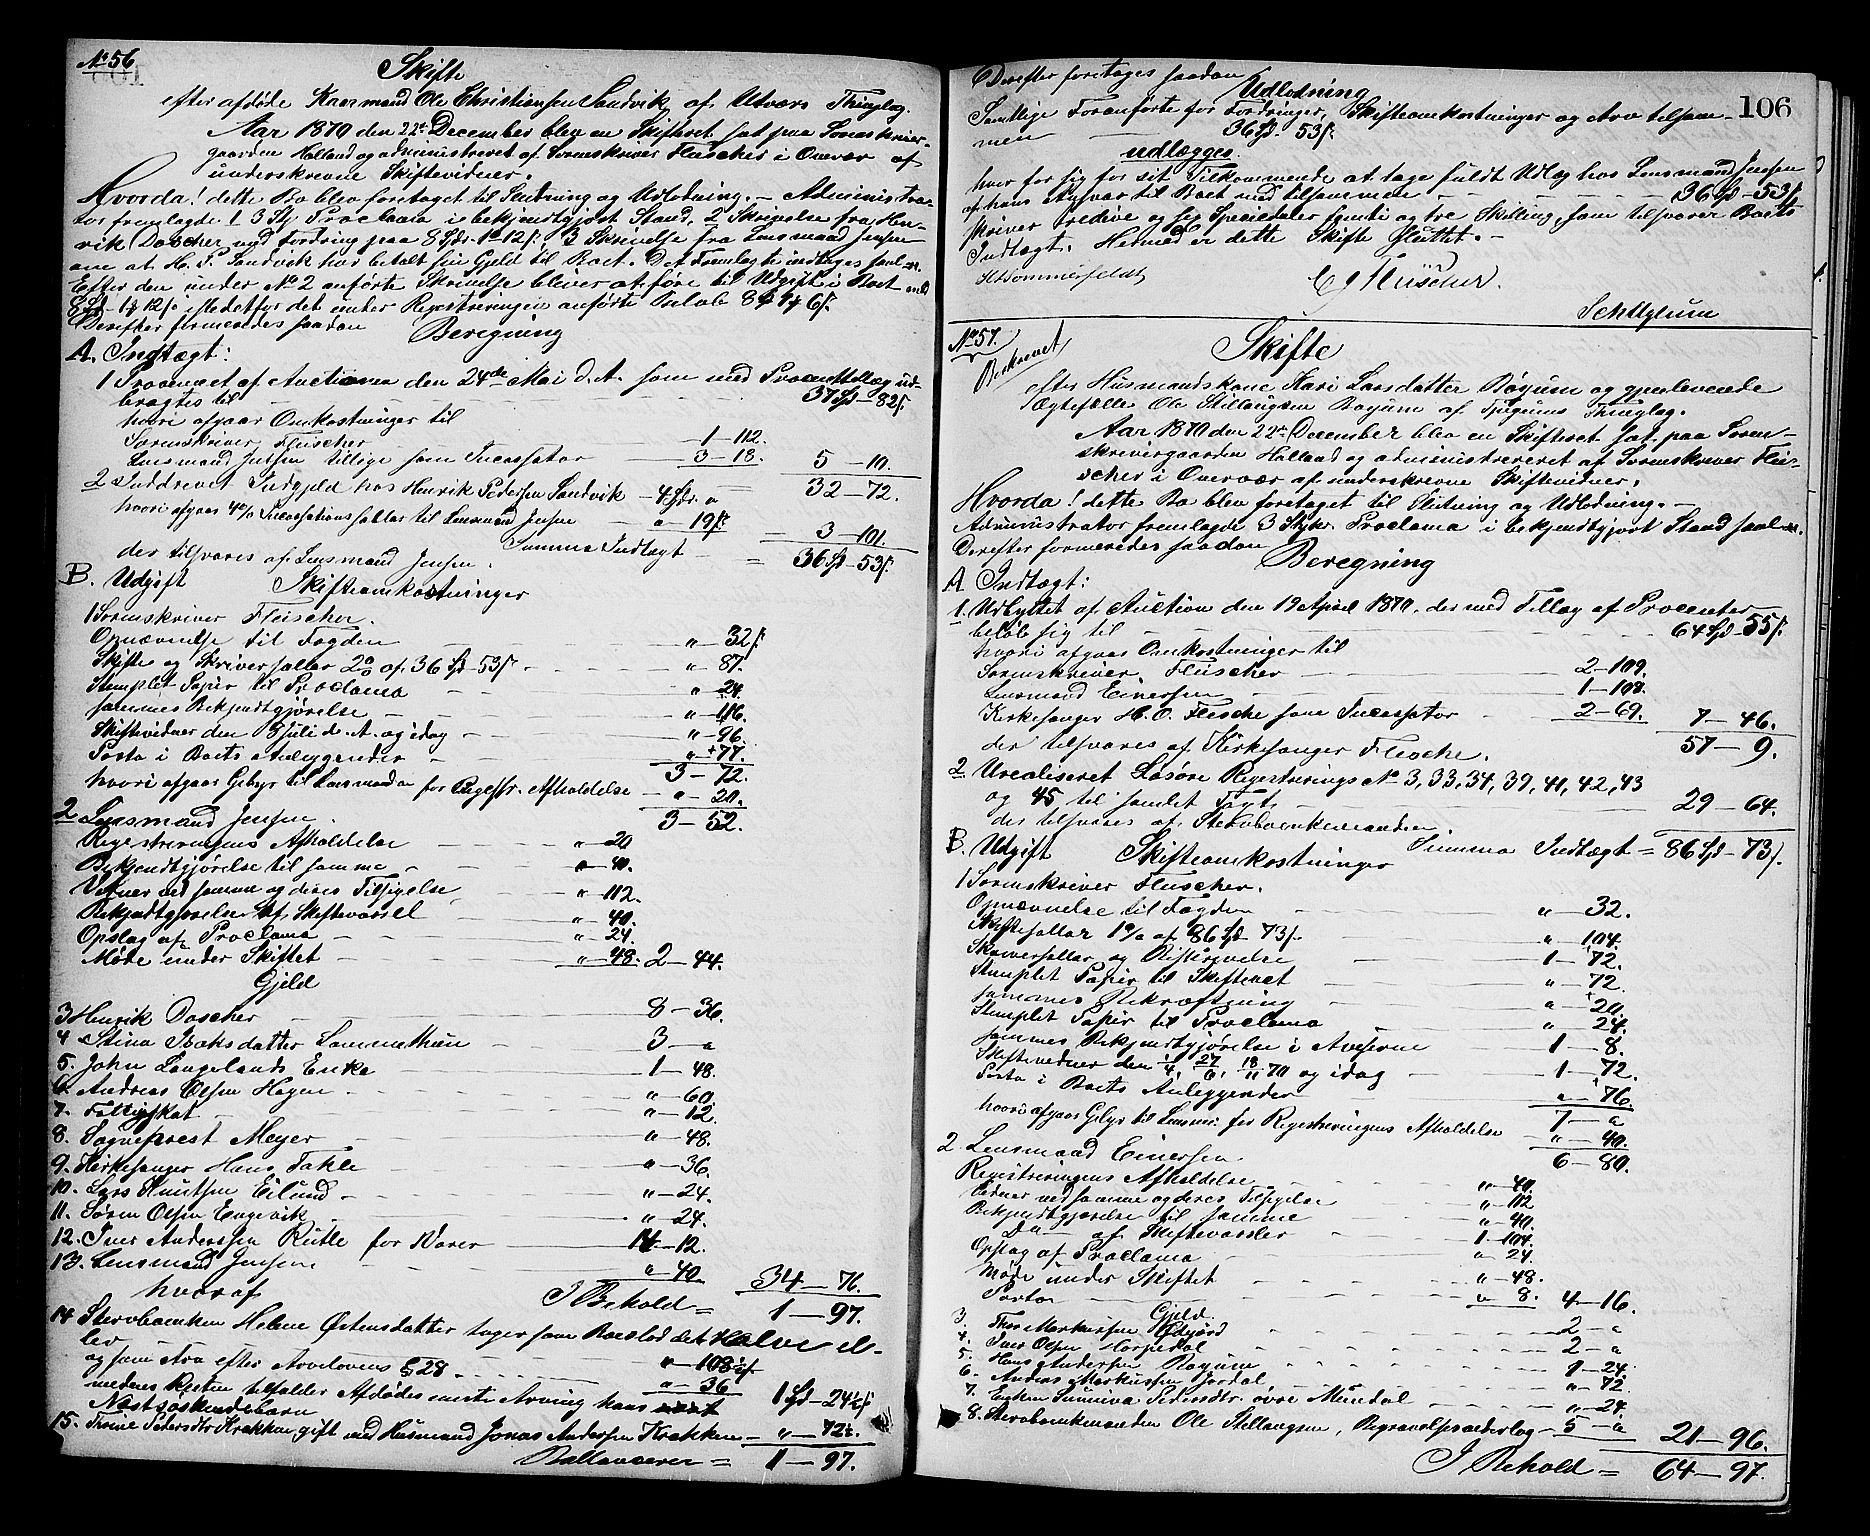 No 56
Skifte
efter afdøde Kaarmand Ole Christiansen Sandvik af Utværs Thinglag.
Aar 1870 den 22de December blev en Skifteret sat paa Sorenskriver-
gaarden Holland og administreret af Sorenskriver Fleischer i Overvær af
underskrevne Skiftevidner.
Hvorda! dette Bo blev foretaget til Slutning og Udlodning. – Administra-
tor fremlagde 1, 3 Stk Proclama i bekjendtgjort Stand, 2 Skrivelse fra Hen-
vik Dascher, ved Fordring paa 8 Spdr. 1 12 ß. 3 Skrivelse fra Lensmand Jensen
om at H. P. Sandvik har betalt sin Gjeld til Boet. Det Fremlagte indtages saal.
Efter den under No 2 anførte Skrivelse bliver at føre til Udgift i Boet
8 Spd 1 12 ß. istedetfor det under Registreringen anførte Beløb 8 6 ß.
Derefter formeredes saadan
Beregning
A. Indtægt:
1 Provenuet af Auctionen den 24de Mai d. A. som med Procenttillæg ud-
bragtes til – 37 Spd – 82 ß.
hvori afgaar Omkostninger til
Sorenskriver Fleischer 1 – 112.
Lensmand Jensen tillige som Incassator 3 – 18. 5 – 10.
32 – 72.
2 Inddrevet Indgjeld hos Henrik Pedersen Sandvik – 4 Spdr. "
hvori afgaar 4% Incassationssallar til Lensmand Jensen " – 19 ß. 3 – 101.
Summa Indtægt = 36 Spd – 53 ß.
der tilsvares af Lensmand Jensen.
B. Udgift Skifteomkostninger
1 Sorenskriver Fleischer.
Opnævnelse til Fogden " – 32 ß.
Skifte og Skriversallar 2% af 36 Spd – 53 ß – " – 87.
Stemplet Papir til Proclama " – 24.
sammes Bekjendtgjørelse " – 116.
Skiftevidner den 8 Juli d. A. og idag " – 96.
Porto i Boets Anliggender " – 77.
3 – 72.
hvori afgaar Gebyr til Lensmanden for Registr. Afholdelse – " – 20.
3 – 52.
2 Lensmand Jensen.
Registreringens Afholdelse " – 20
Bekjendtgjørelse til samme " – 40.
Vidner ved samme og deres Tilsigelse, " – 112.
Bekjendtgjørelse af Skiftevarsel " – 40.
Opslag af Proclama " – 24.
Møde under Skiftet " – 48. 2 – 44.
Gjeld
3 Henrik Dascher 8 – 36.
4 Stina Isaksdatter 3 – "
5. John Langelands Enke 1 – 48.
6 Andreas Olsen Hagen " – 60.
7. Fattigskat " – 12.
8. Sogneprest Meyer " – 48.
9. Kirkesanger Hans Takle " – 36.
10. Lars Knutsen Eilund " – 24.
11. Søren Olsen Engevik " – 24.
12. Iver Andersen Rutle for Varer 14 – 12.
13. Lensmand Jensen " – 40 34 – 76.
I Behold = 1 – 97.
hvoraf
14 Stervboenken Helene Østensdatter tager som Boeslod det Halve el-
ler " – 108½ ß.
og som Arv efter Arvelovens § 28 " – 36 1 Spd – 24½ ß.
medens Resten tilfalder Afdødes eneste Arving hans
Næstsøskendebarn
15. Thrine Pedersdtr Krakken, gift med Husmand Jonas Andersen Krakken – " – 72½.
Ballancerer = 1 – 97.
106
Derefter foretages saadan
Udlodning
Samtlige Foranførte for Fordringer, Skifteomkostninger og Arv tilsam-
men 36 Spd. 53 ß.
udlægges
hver for sig for sit Tilkommende at tage fuldt Udlæg hos Lensmand Jensen
af hans Ansvar til Boet med tilsammen 36 Spd 53 ß
skriver tredive og sex Speciedaler femti og tre Skilling, som tilsvarer Boets
Indtægt. Hermed er dette Skifte sluttet. –
C. Fleischer.
HSommerfeldt
No 57.
Beskrevet
Skifte
efter Husmandskone Kari Larsdatter Bøyum og gjenlevende
Ægtefælle Ole Stillaugsen Bøyum af Thinglag.
Aar 1870 den 22de December blev en Skifteret sat paa Soren-
skrivergaarden Holland og administrereret af Sorenskriver Flei-
scher i Overvær af underskrevne Skiftevidner.
Hvorda! dette Bo blev foretaget til Slutning og Udlodning. –
Administrator fremlagde 3 Stkr. Proclama i bekjendtgjort Stand saal.
Derefter formeredes saadan
Beregning
A Indtægt:
1. Udbyttet af Auction den 19 April 1870, der med Tillæg af Procenter
beløb sig til 64 Spd – 55 ß.
hvori afgaar Omkostninger til
Sorenskriver Fleischer 2 – 109.
Lensmand Einersen 1 – 108.
Kirkesanger H. O. Flesche som Incassator 2 – 69. 7 – 46.
57 – 9.
der tilsvares af Kirkesanger Flesche.
2 Urealiseret Løsøre Registrerings No 3, 33, 34, 39, 41, 42, 43
og 45 til samlet Taxt 29 – 64.
der tilsvares af Stervboenkemanden.
Summa Indtægt = 86 Spd – 73 ß.
B. Udgift Skifteomkostninger
1 Sorenskriver Fleischer.
Opnævnelse til Fogden " – 32.
Skiftesallar 1% af 86 Spd 73 ß – " – 104.
Skriversallar og 1 – 72.
Stemplet Papir til Skifteret " – 72.
sammes Bekræftning " – 20.
Stemplet Papir til Proclama " – 24.
sammes Bekjendtgjørelse i Aviserne 1 – 8.
Skiftevidner den 70 og idag 1 – 72.
Porto i Boets Anliggender " – 76.
7 – "
hvori afgaar Gebyr til Lensm: for Registreringens Afholdelse " – 40.
6 – 80.
2 Lensmand Einersen.
Registreringens Afholdelse " – 40
Vidner ved samme og deres Tilsigelse " – 112
Bekjendtgjørelse til samme " – 40.
Do af Skiftevarsler 1 – 104.
Opslag af Proclama " – 24
Møde under Skiftet " – 48.
Porto " 8. 4 – 16.
Gjeld.
3. Thor Markussen 2 – "
4. Iver Olsen 2 – "
5. Hans Andersen Bøyum 1 – 24.
6. Andreas Markussen Jordal " – 72
7. Enken Sunniva Pedersdtr. øvre Mundal " – 24.
8. Stervboenkemanden Ole Stillaugsen, Begravelsesudlæg – 5 – " 21 – 96.
I Behold = 64 – 97.